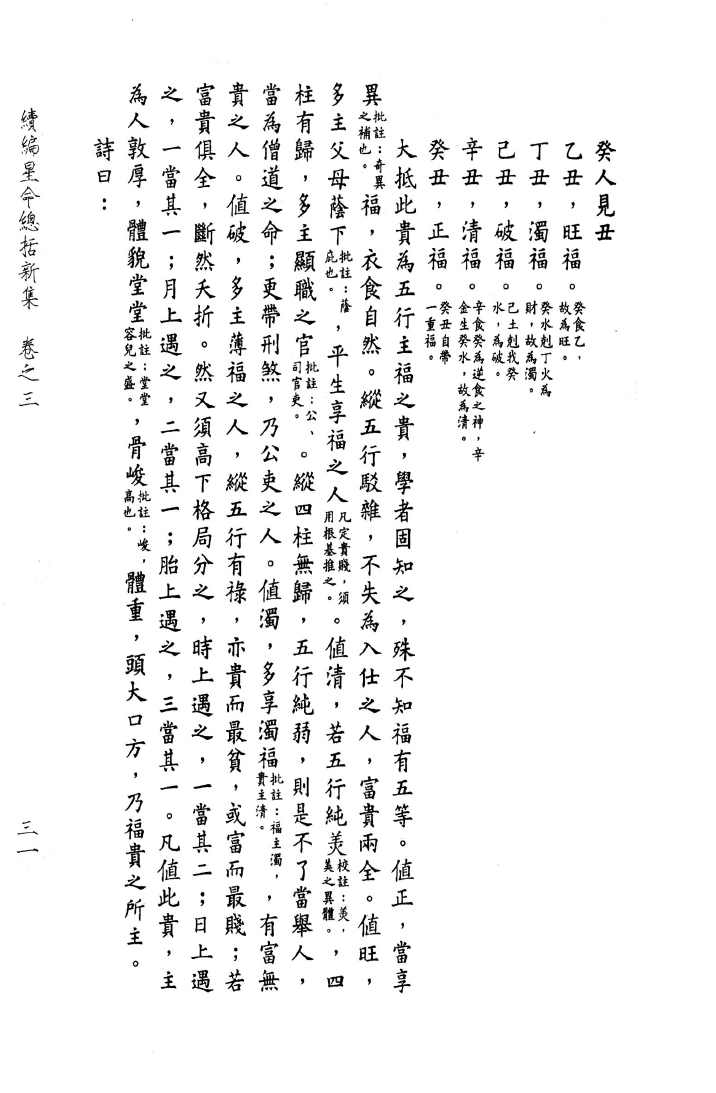 癸人見丑
乙丑，旺福。癸食乙，故為旺。
丁丑，濁福。癸水剋丁火為財，故為濁。
己丑，破福。己土剋我癸水，為破。
辛丑，清福。辛食癸為逆食之神，辛金生癸水，故為清。
癸丑，正福。癸丑自帶一重福。
大抵此貴為五行主福之貴，學者固知之，殊不知福有五等。值正，當享
異批註：奇異之補也。福，衣食自然。縱五行駁雜，不失為入仕之人，富貴兩全。值旺，
多主父母蔭下批註：蔭，庇也。，平生享福之人凡定貴賤，須用根基推之。。值清，若五行純羙校註：羙，美之異體。，四
柱有歸，多主顯職之官批註：公、司官吏。。縱四柱無歸，五行純弱，則是不了當舉人，
當為僧道之命；更帶刑煞，乃公吏之人。值濁，多享濁福批註：福主濁，貴主清。，有富無
貴之人。值破，多主薄福之人，縱五行有祿，亦貴而最貧，或富而最賤；若
富貴俱全，斷然夭折。然又須高下格局分之，時上遇之，一當其二；日上遇
之，一當其一；月上遇之，二當其一；胎上遇之，三當其一。凡值此貴，主
為人敦厚，體貌堂堂批註：堂堂容皃之盛。，骨峻批註：峻，高也。，體重，頭大口方，乃福貴之所主。
詩曰：
續編星命總括新集　卷之三
三一